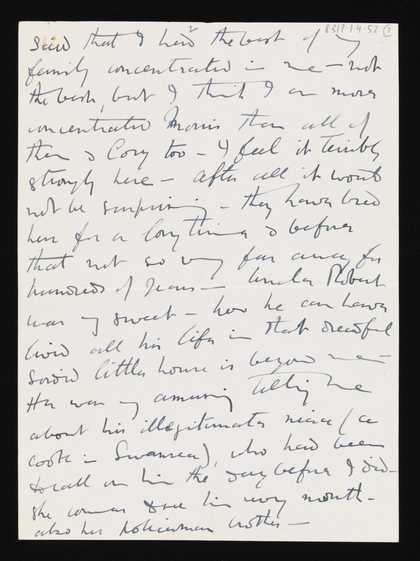 8317.1.4.52 2
said that I had the best of my
family concentrated in me – not
the best, but I think I am more
concentrated Morris than all of
them & Cory too – I feel it terribly
strongly here – after all it would
not be surprising – they have lived
here for a long time & before
that not so very far away for
hundreds of years – Uncle Robert
was v sweet – how he can have
lived all his life in that dreadful
sordid little house is beyond me –
He was v amusing telling me
about his illegitimate niece (a
cook in Swansea), who had been
to call on him the day before I did –
she comes to see him every month –
also her policeman brother –